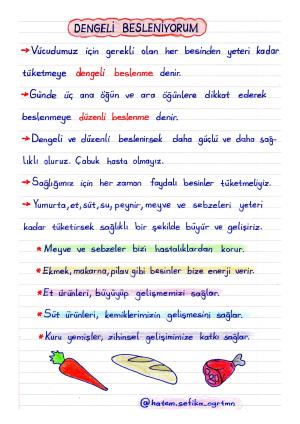 DENGELİ BESLENİYORUM
→Vücudumuz için gerekli olan her besinden yeteri kadar
tüketmeye dengeli beslenme denir.
→Günde üç ana öğün ve ara öğünlere dikkat ederek
beslenmeye düzenli beslenme denir.
→Dengeli ve düzenli beslenirsek daha güçlü ve daha sağ-
lıklı oluruz. Çabuk hasta olmayız.
→Sağlığımız için her zaman faydalı besinler tüketmeliyiz.
→Yumurta, et, süt, su, peynir, meyve ve sebzeleri yeteri
kadar tüketirsek sağlıklı bir şekilde büyür ve gelişiriz.
*Meyve ve sebzeler bizi hastalıklardan korur.
*Ekmek, makarna, pilav gibi besinler bize enerji verir.
*Et ürünleri, büyüyüp gelişmemizi sağlar.
*Süt ürünleri, kemiklerimizin gelişmesini sağlar.
*Kuru yemişler, zihinsel gelişimimize katkı sağlar.
@hatem.sefika_ogrtmn